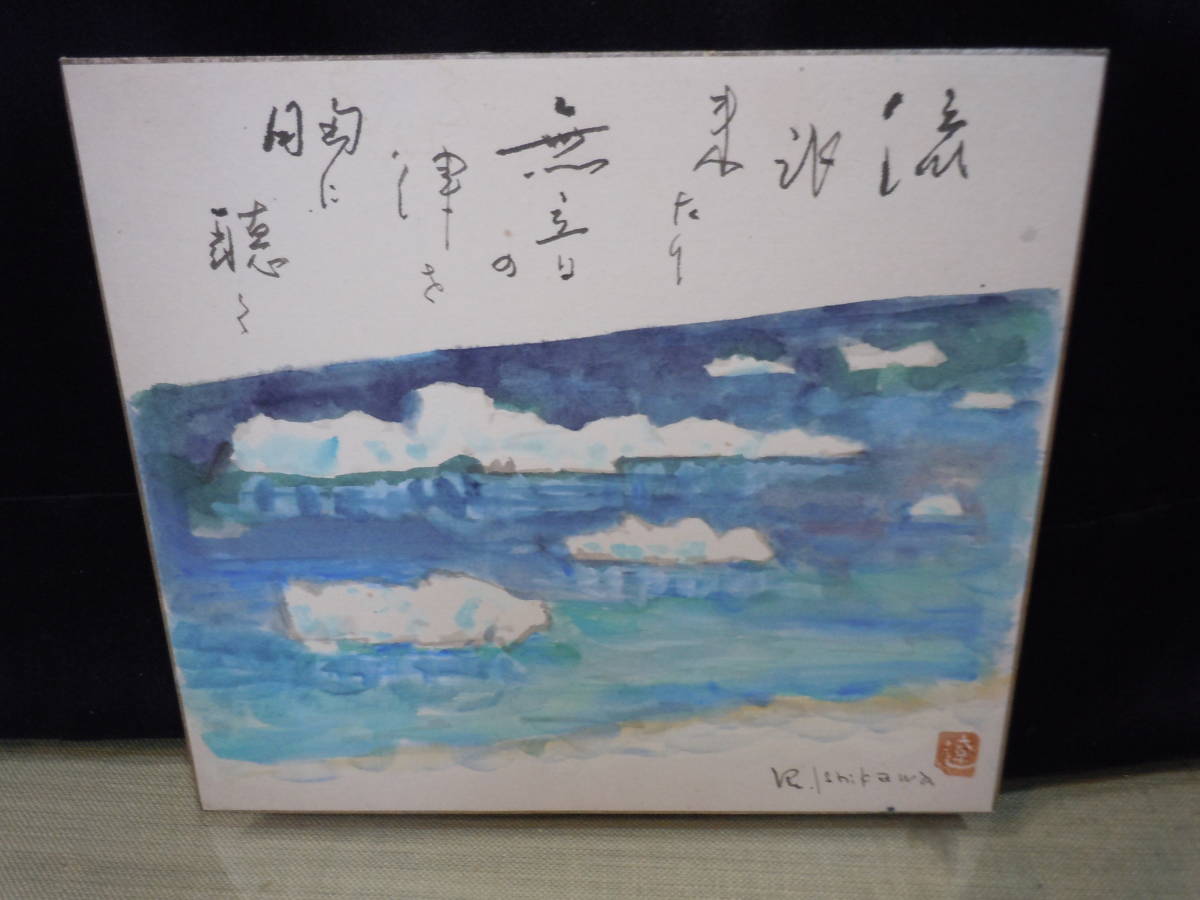 流氷
来たり
無音の
律を
胸に
聴く
R. Ishikawa